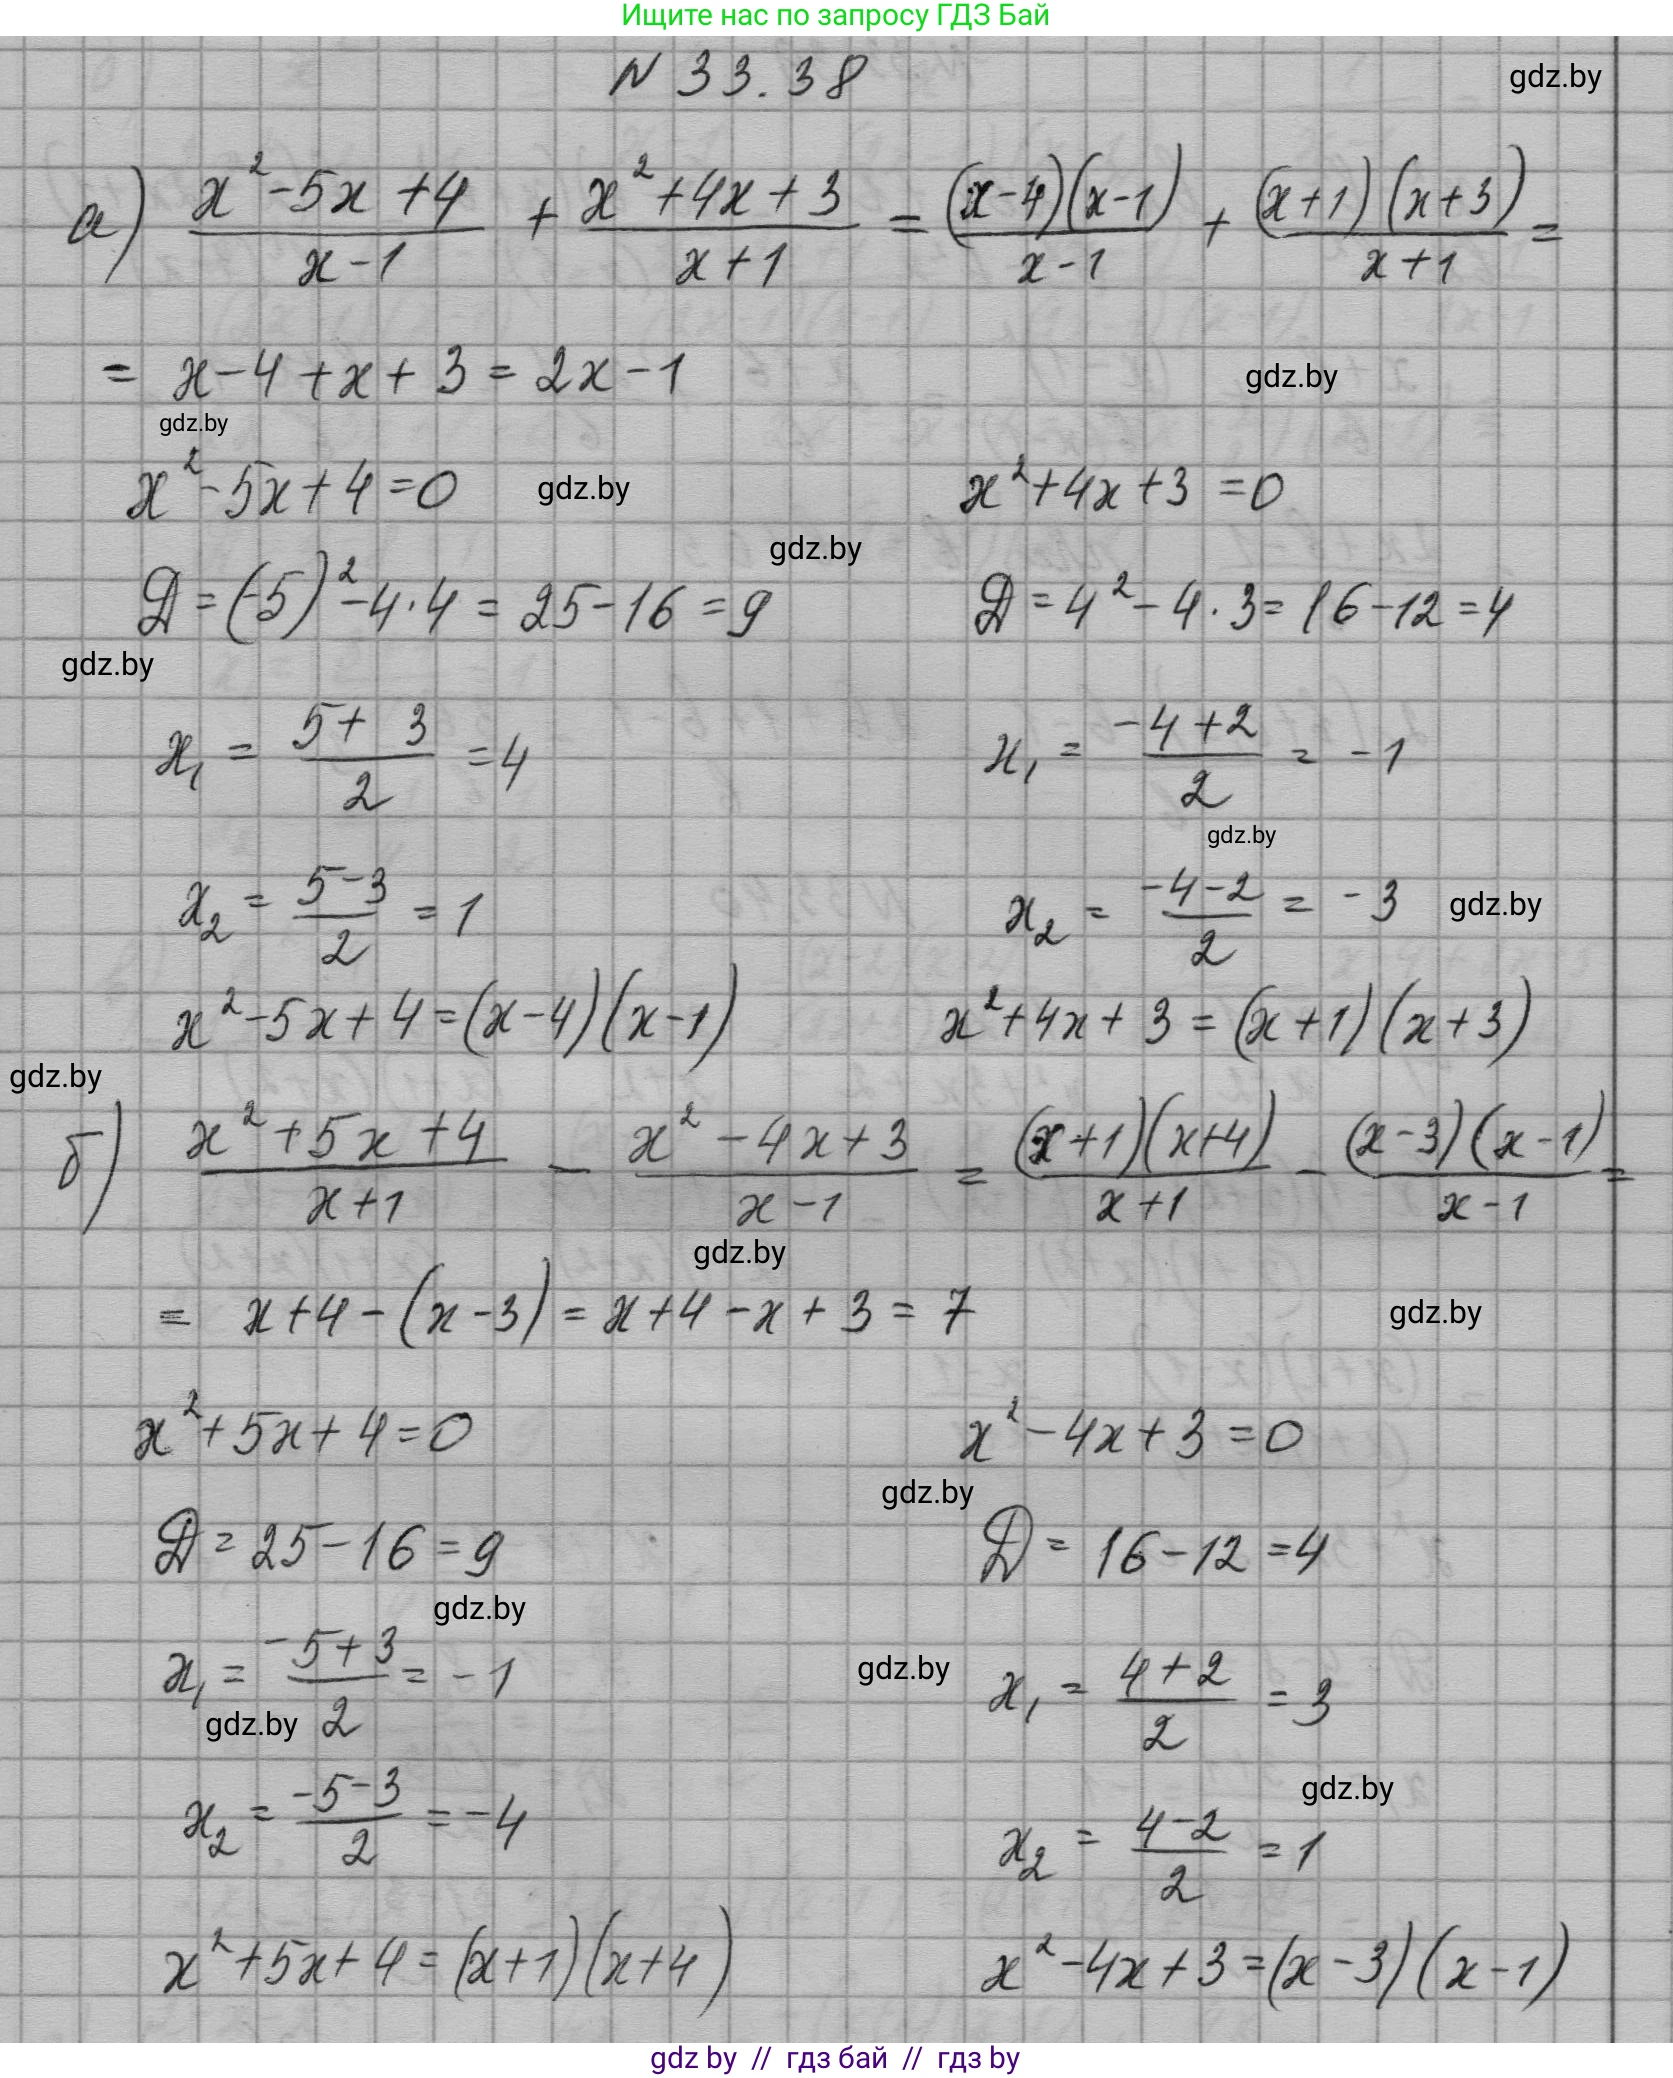 Ищите нас по запросу ГДЗ Бай
N 33.38
gdz.by
а) (x²-5x+4)/(x-1) + (x²+4x+3)/(x+1) = ((x-4)(x-1))/(x-1) + ((x+1)(x+3))/(x+1) =
= x-4+x+3 = 2x-1
gdz.by
gdz.by
x²-5x+4=0
gdz.by
x²+4x+3=0
gdz.by
D=(-5)²-4·4=25-16=9
D=4²-4·3=16-12=4
gdz.by
x₁ = (5+3)/2 = 4
x₁ = (-4+2)/2 = -1
gdz.by
x₂ = (5-3)/2 = 1
x₂ = (-4-2)/2 = -3
gdz.by
x²-5x+4=(x-4)(x-1)
x²+4x+3=(x+1)(x+3)
gdz.by
б) (x²+5x+4)/(x+1) - (x²-4x+3)/(x-1) = ((x+1)(x+4))/(x+1) - ((x-3)(x-1))/(x-1) =
gdz.by
= x+4-(x-3)=x+4-x+3=7
gdz.by
x²+5x+4=0
x²-4x+3=0
gdz.by
D=25-16=9
D=16-12=4
gdz.by
x₁ = (-5+3)/2 = -1
gdz.by
x₁ = (4+2)/2 = 3
gdz.by
gdz.by
x₂ = (-5-3)/2 = -4
x₂ = (4-2)/2 = 1
x²+5x+4=(x+1)(x+4)
x²-4x+3=(x-3)(x-1)
gdz by // гдз бай // гдз by